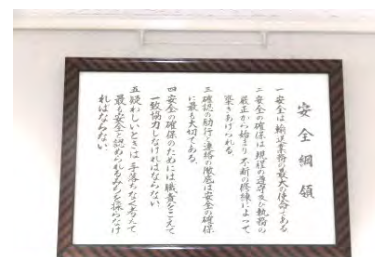 安全綱領
一 安全は輸送業務の最大の使命である
二 安全の確保は規程の遵守及び執務の
厳正から始まり不断の修練によって
築きあげられる。
三 確認の励行と連絡の徹底は安全の確保
に最も大切である。
四 安全の確保のためには職責をこえて
一致協力しなければならない。
五 疑わしいときは手落ちなく考えて
最も安全と認められるみちを採らなけ
ればならない。